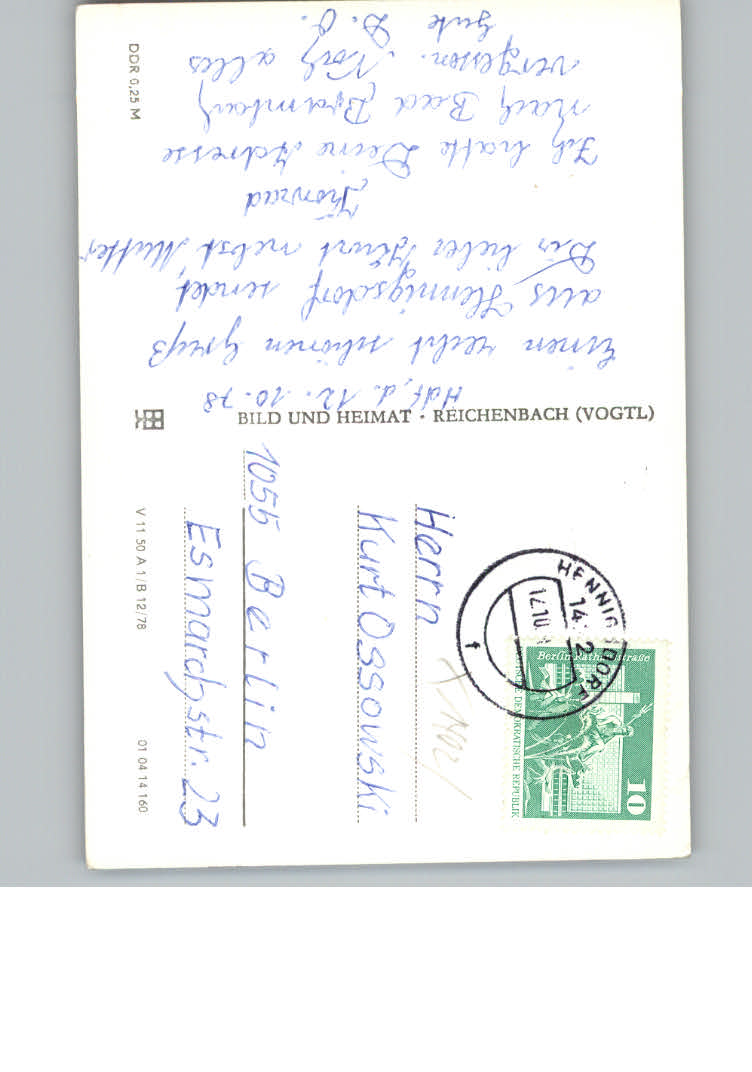 Hdf, d. 12.10.78
Einen recht schönen Gruß
aus Hennigsdorf sendet
Dir lieber Kurt nebst Mutter
Konrad
Ich hatte Deine Adresse
nach Bad Brambach
vergessen. Noch alles
Gute D. O.
DDR 0,25 M
BILD UND HEIMAT · REICHENBACH (VOGTL)
V 11 50 A 1/B 12/78
01 04 14 160
Herrn
Kurt Ossowski
1055 Berlin
Esmarchstr. 23
HENNIGSDORF
1
Berlin Rathausstraße
DEMOKRATISCHE REPUBLIK
10